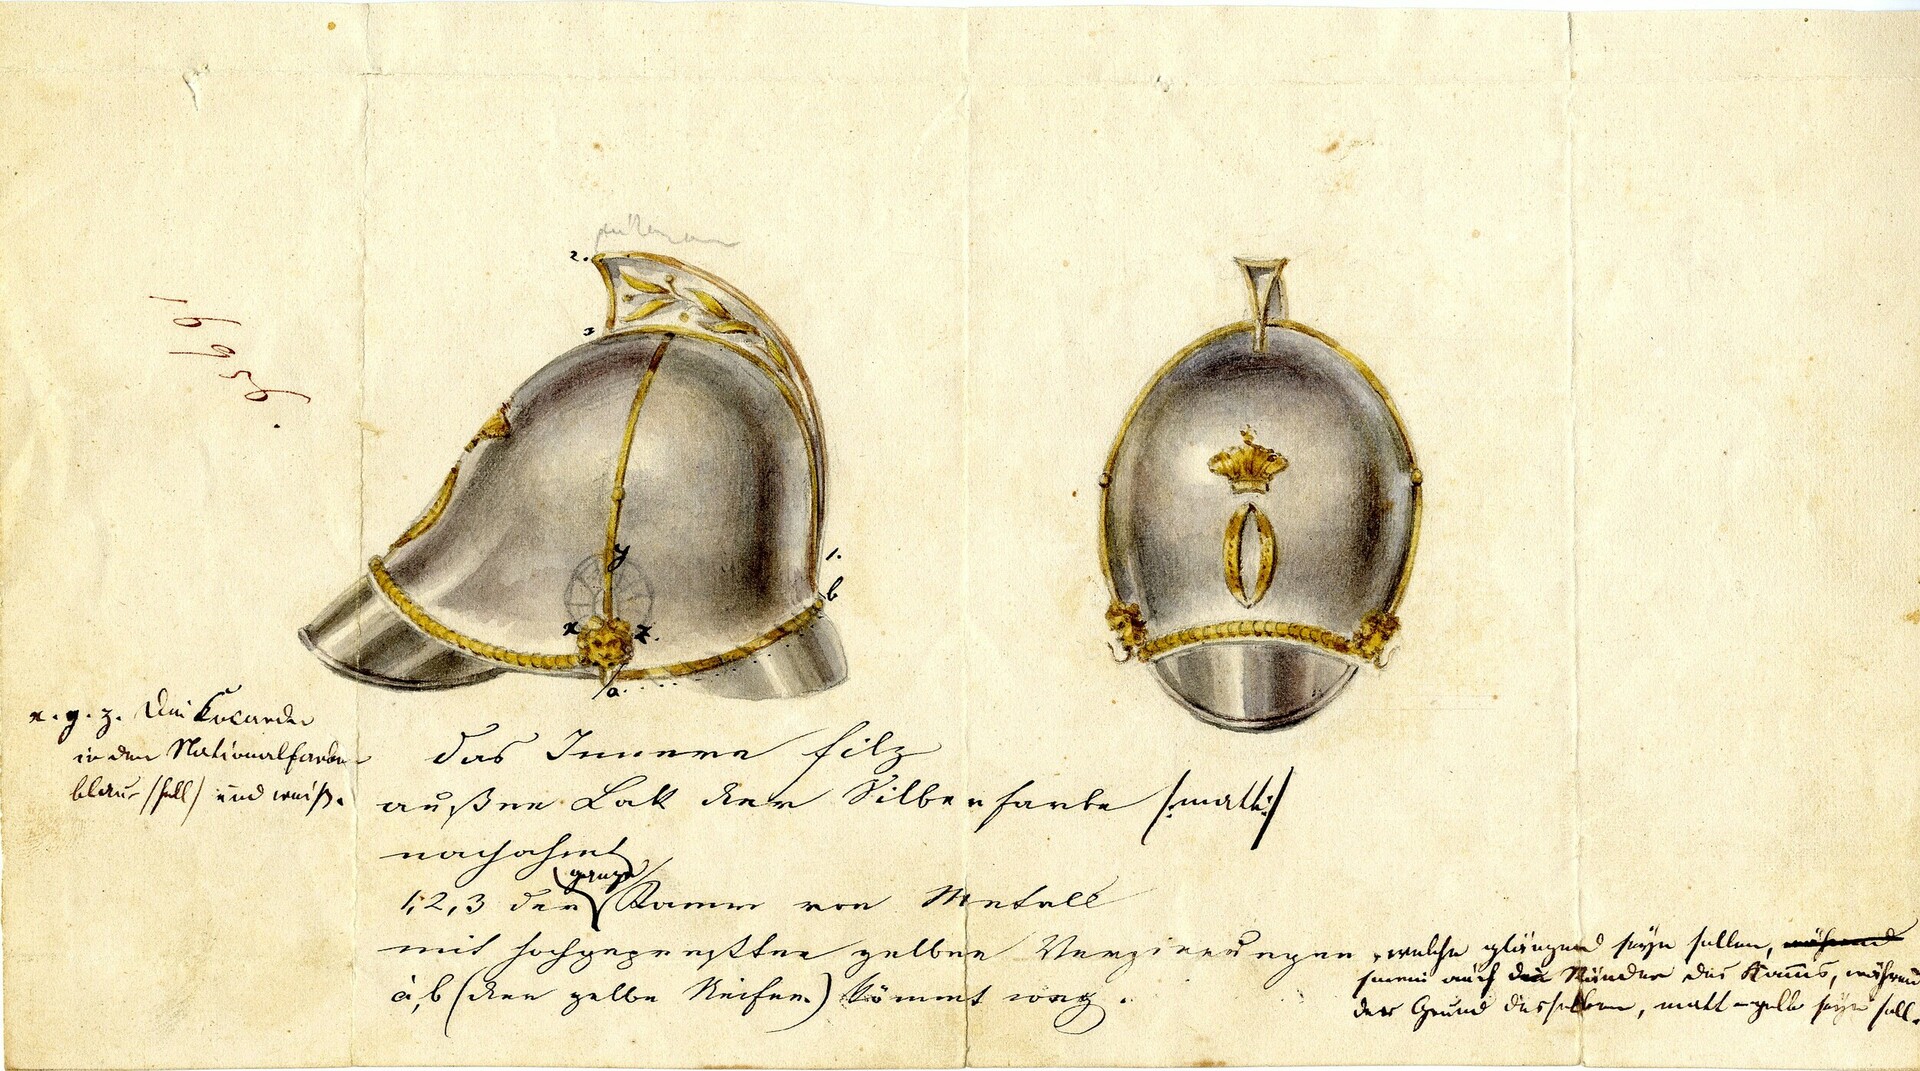 2.
3
1.
b
y
x z.
a.
16 956.
x. y. z. Die Kocarde
in den Nationalfarben
blau (hell) und weiß.
das Innere filz
außen Lak der Silberfarbe (:matt:)
nachahmt
1, 2, 3 der ganze Kamm von Metall
mit hochgepreßten gelben Verzierungen, welche glänzend seyn sollen, während
sowie auch die Ränder des Kamms, während
der Grund desselben, matt-gelb seyn soll.
a, b (der gelbe Reifen) kömmt weg.